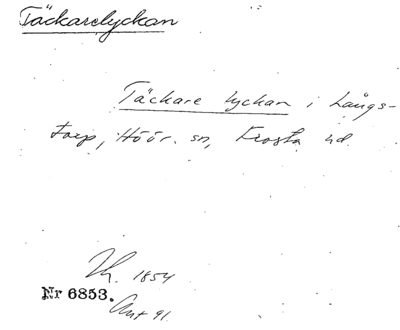 Täckarelyckan
Täckare lyckan i Långs-
torp, Höör. sn, Frosta hd.
1854
Nr 6853.
Ant 91